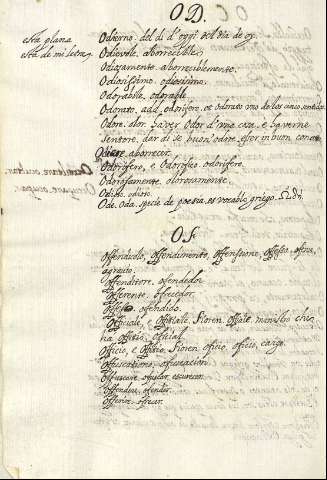 OD.
esta plana
esta de mi letra
Odierno. del di d'oggi. del dia de oy.
Odievole. aborrecible.
Odiosamente. aborreciblemente.
Odiosissimo. odiosisimo.
Odorabile. odorable
Odorato. add. odorifero. et odorato uno de los cinco sentidos
Odore. olor. haver Odor d'una cosa. e haverne
sentore. dar di se buon' odore. esser in buon concetto
Odiare. aborrecer.
Odorifero, e Odorifico odorifero.
Odorosamente. olorosamente.
Odio. odio
Ode. Oda. specie de poesia. es vocablo griego. Ωδη.
OF.
Offendevolo, Offendimento, Offensione, Offesa. ofensa,
agravio.
Offenditore. ofendedor
Offerente. ofrecedor
Offeso. ofendido.
Officiale, e Offitiale. Fioren.
na offitio, oficial.
Officio, e Offitio. Fioren. oficio, oficio, cargo.
Offuscatione. ofuscacion
Offuscare. ofuscar. escurecer.
Offendere. ofender.
Offerire. ofrecer.